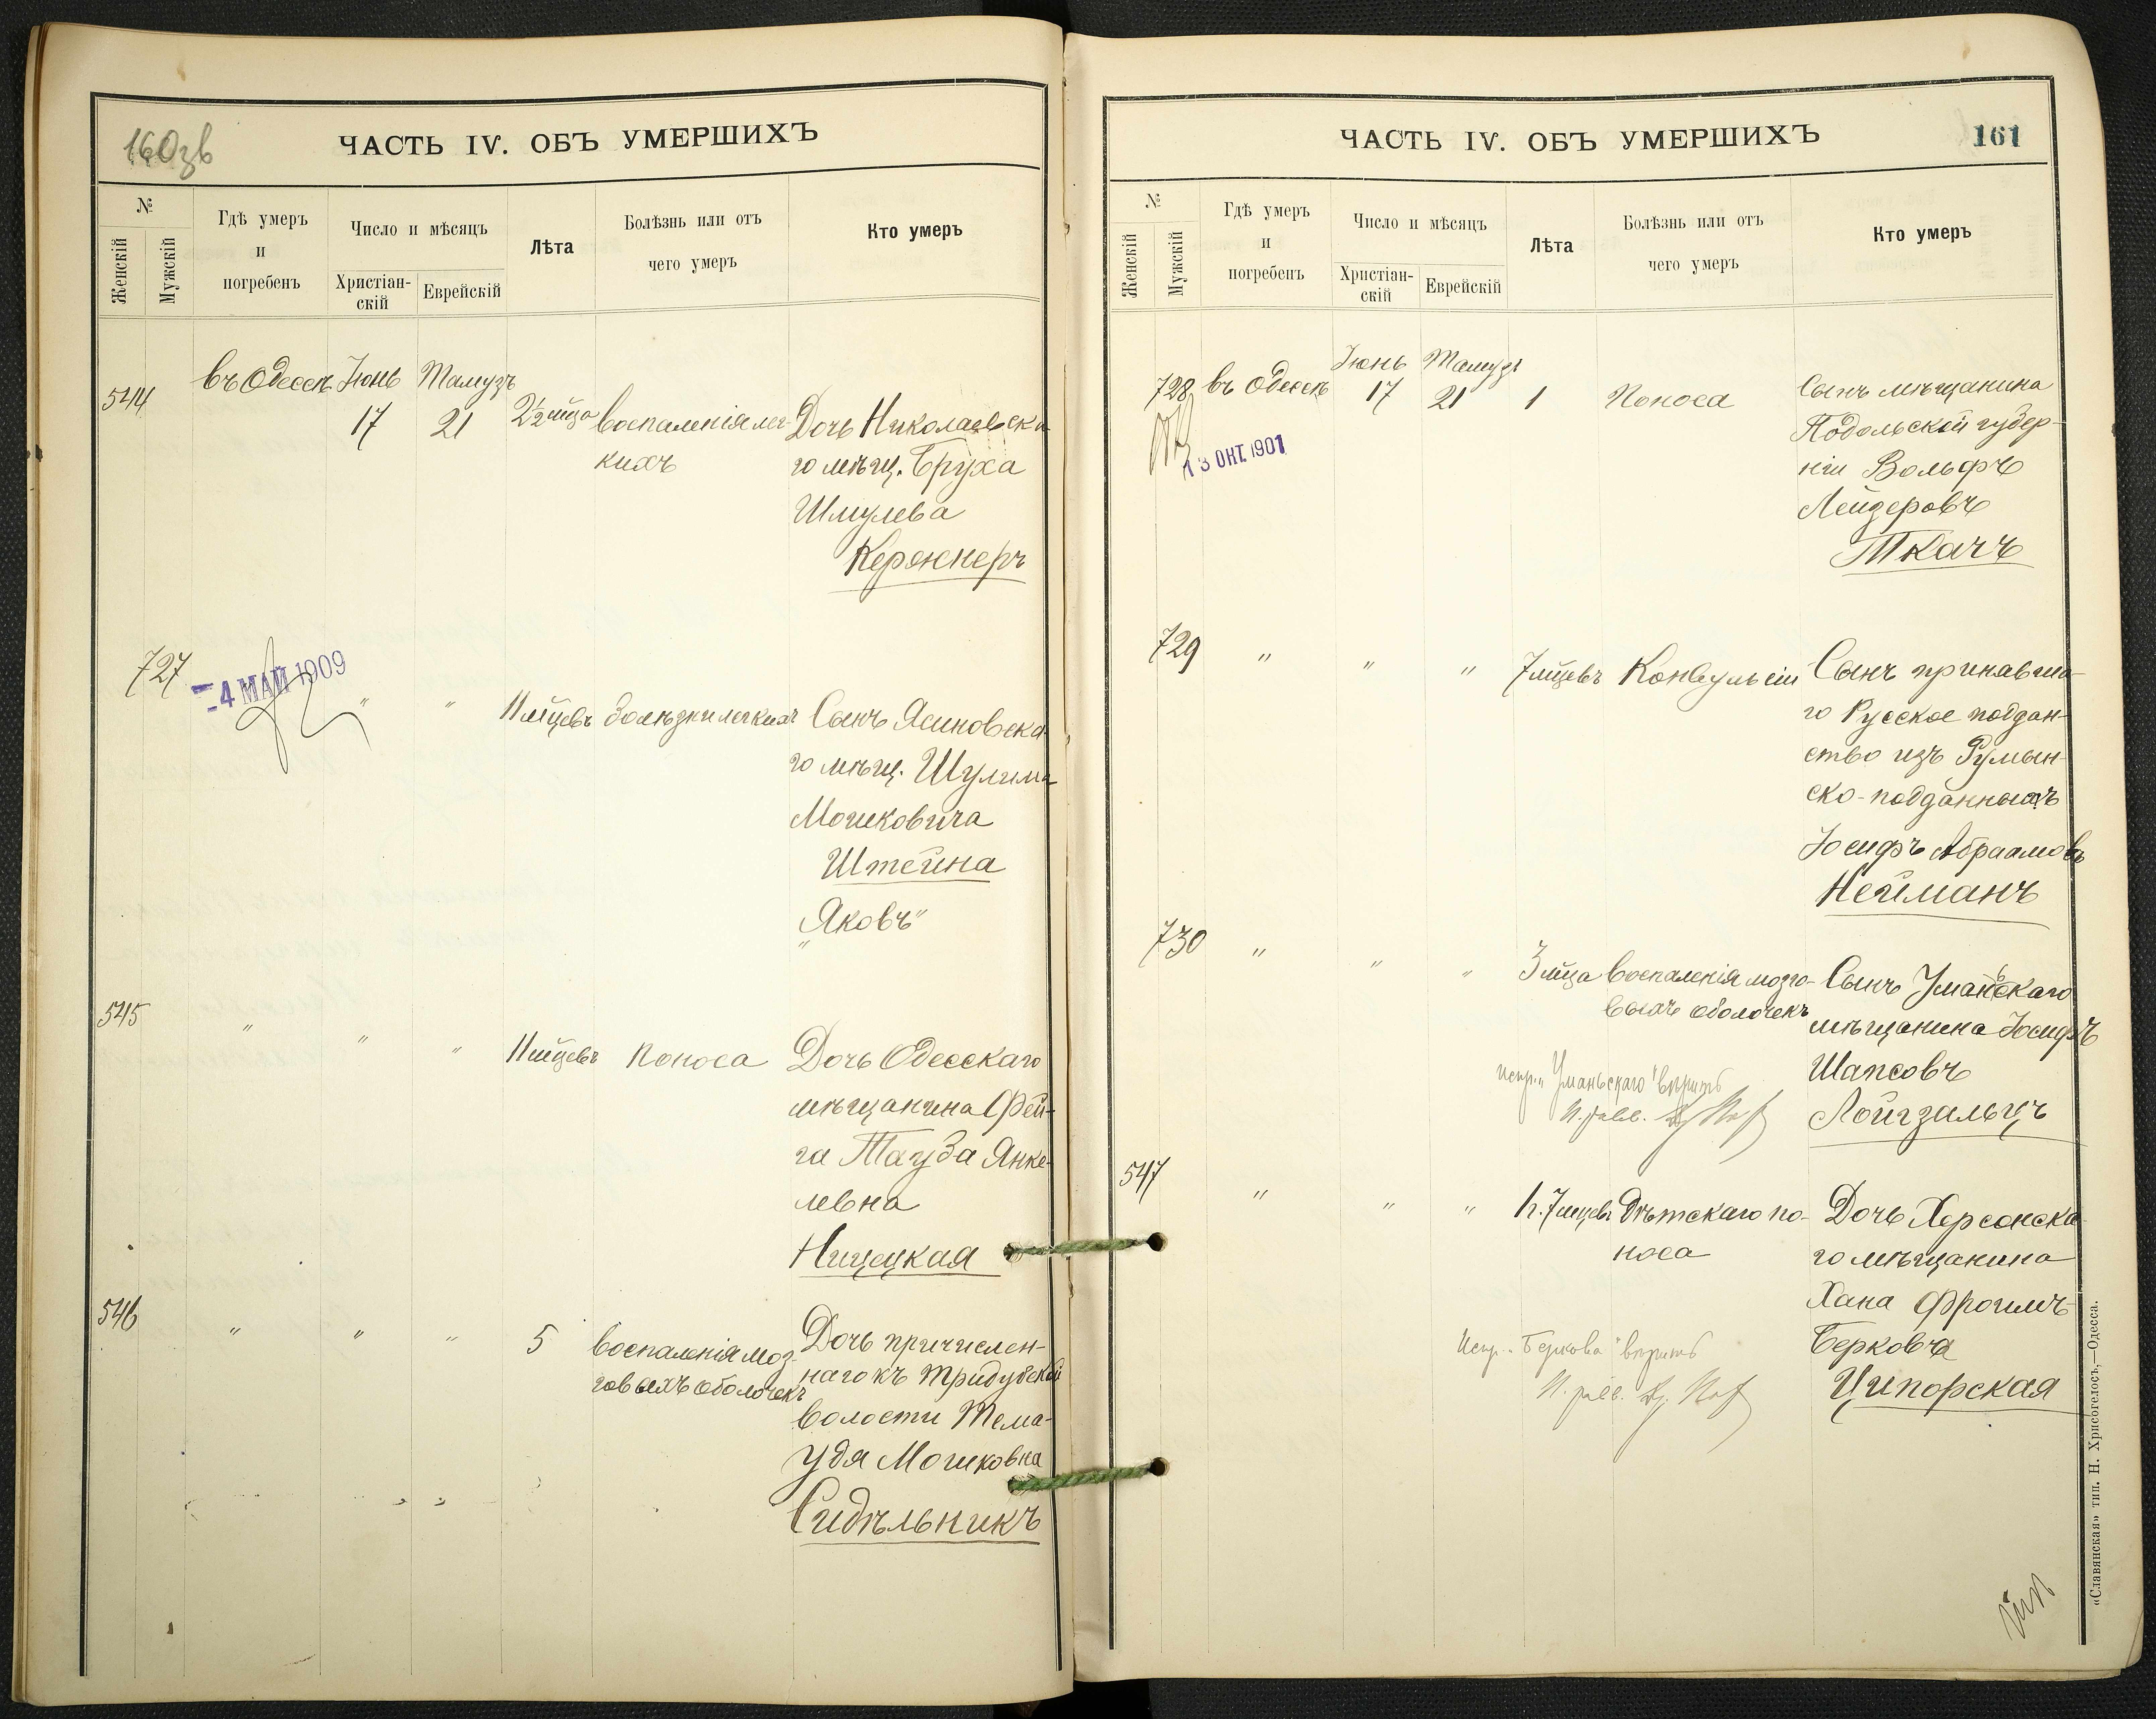 160зв
ЧАСТЬ IV. ОБЪ УМЕРШИХЪ
№
Женскій
Мужскій
Гдѣ умеръ
и
погребенъ
Число и мѣсяцъ
Христіан-
скій
Еврейскій
Лѣта
Болѣзнь или отъ
чего умеръ
Кто умеръ
544
въ Одессѣ Іюнь Тамузъ
17 21 2½ мѣца воспаленія лег-
кихъ
Дочь Николаевска
го мѣщ. Бруха
Шмулева
727
4 МАЙ 1909
" " 11 мѣцевъ болѣзни легкихъ
Сынъ Ясиновска
го мѣщ. Шулима
Мошковича
Штейна
"Яковъ"
545
" " " 11 мѣцевъ поноса
Дочь Одесскаго
мѣщанина Фей-
га Тауба Янке-
левна
Ницецкая
546
" " " 5 воспаленія моз-
говыхъ оболочекъ
Дочь причислен-
наго къ Тридубской
волости Тема-
Удя Мошковна
Сидѣльникъ
ЧАСТЬ IV. ОБЪ УМЕРШИХЪ
161
№
Женскій
Мужскій
Гдѣ умеръ
и
погребенъ
Число и мѣсяцъ
Христіан-
скій
Еврейскій
Лѣта
Болѣзнь или отъ
чего умеръ
Кто умеръ
728 въ Одессѣ Іюнь Тамузъ
17 21 1 Поноса
13 ОКТ. 1901
Сынъ мѣщанина
Подольской губер-
ніи Вольфъ
Лейзеровъ
Ткачъ
729
" " " 7 мѣцевъ Конвульсіи
Сынъ принявша-
го Русское поддан-
ство изъ Румын-
ско-подданныхъ
Іосифъ Абрамовъ
Нейманъ
730
" " " 3 мѣца воспаленія мозго-
выхъ оболочекъ
Сынъ Уманьскаго
мѣщанина Іосифъ
Шапсовъ
Лойгзальцъ
испр. "Уманьскаго" вѣрить
547
" " " 1 г. 7 мѣцевъ дѣтскаго по-
носа
Дочь Херсонска-
го мѣщанина
Хана Фроимъ-
Беркова
Ципорская
Испр. "Беркова" вѣрить
«Славянская» тип. Н. Хрисогелосъ,—Одесса.